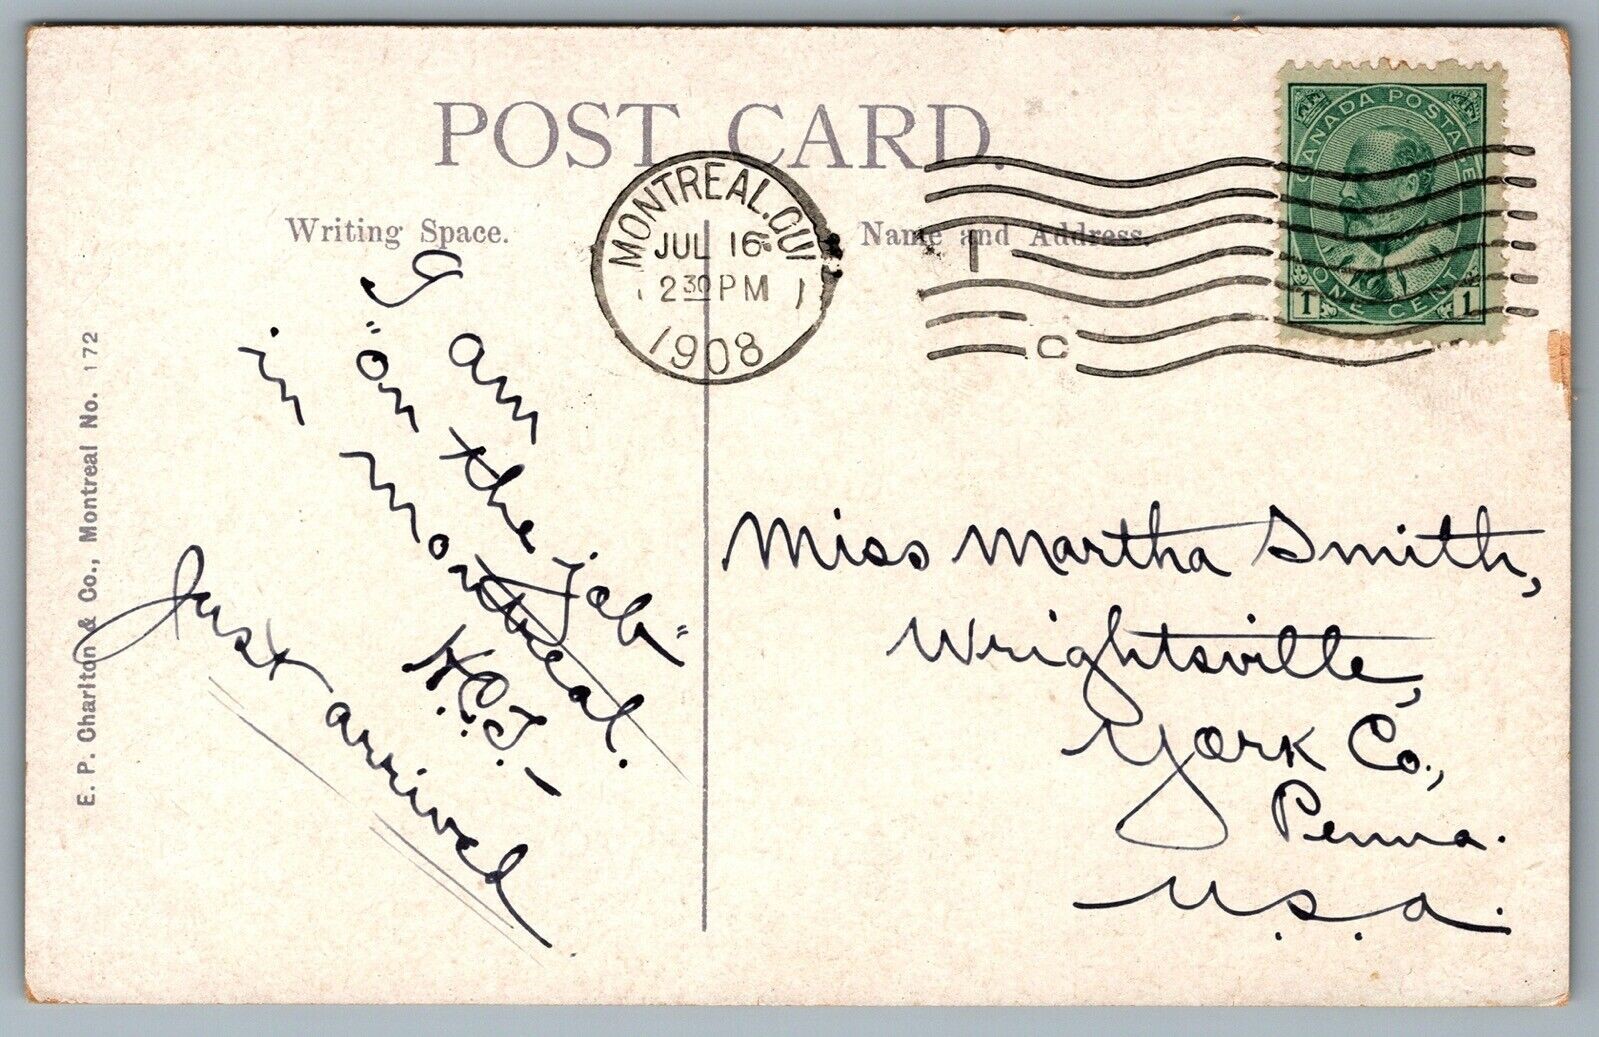 POST CARD.
Writing Space.
Name and Address.
MONTREAL. QUI
JUL 16
2 30 PM
1908
1
C
CANADA POSTAGE
1 ONE CENT 1
I am
"on the job"
in Montreal.
H.C.S. –
Just arrived
Miss Martha Smith,
Wrightsville,
York Co.,
Penna.
U.S.A.
E. P. Charlton & Co., Montreal No. 172